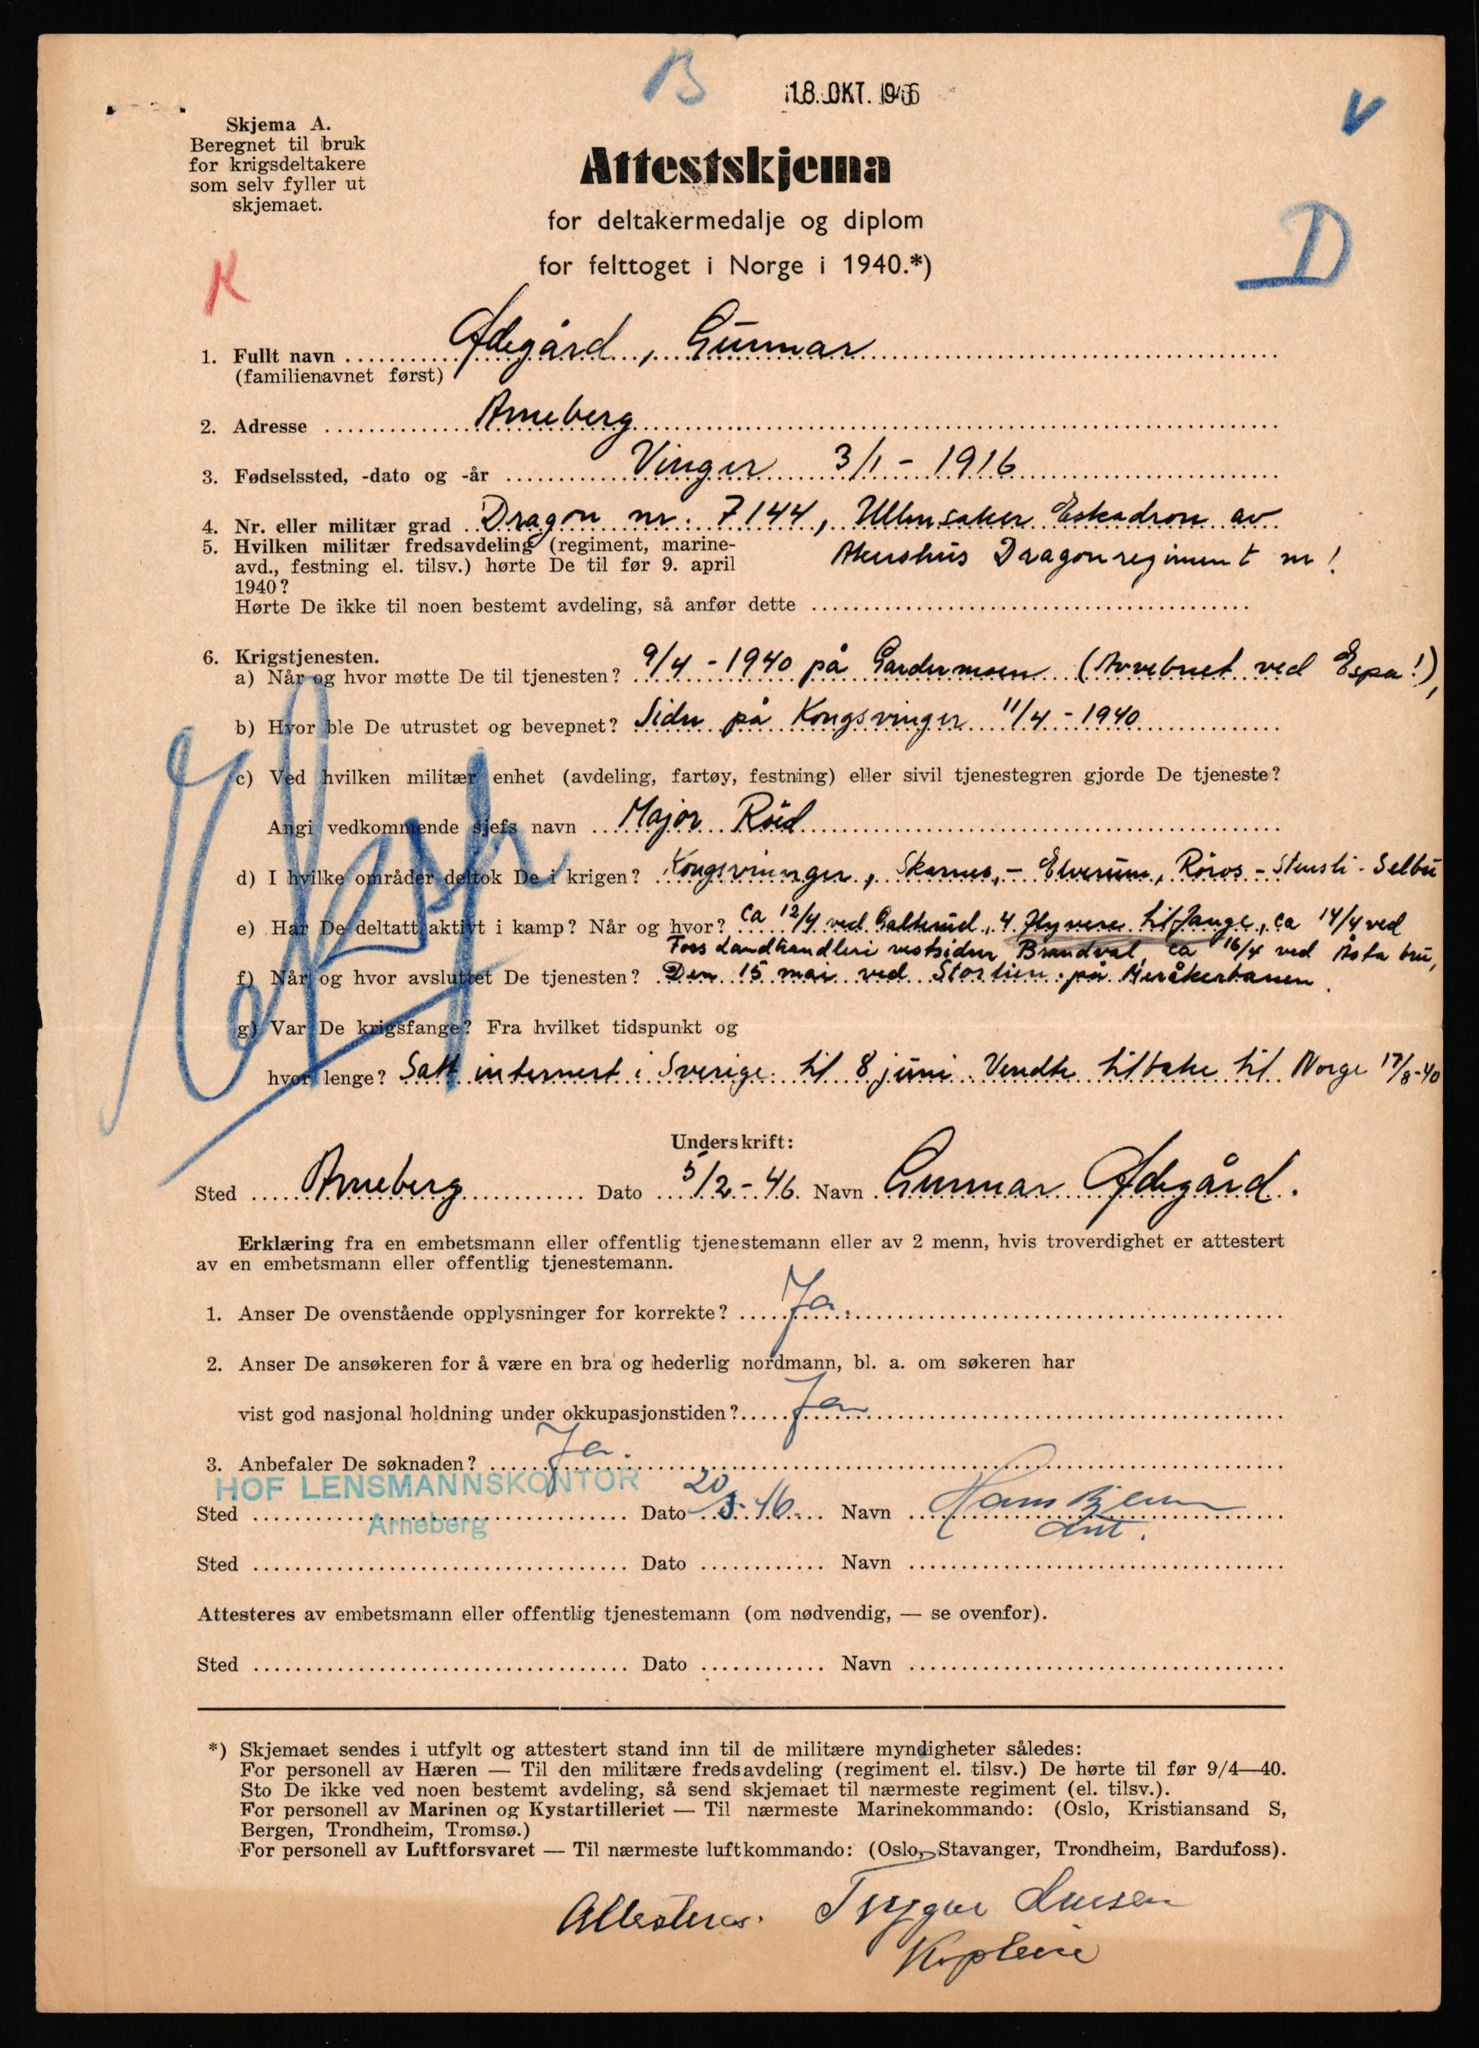 B
18. OKT. 1946
V
Skjema A.
Beregnet til bruk
for krigsdeltakere
som selv fyller ut
skjemaet.
Attestskjema
for deltakermedalje og diplom
for felttoget i Norge i 1940.*)
K
D
1. Fullt navn Ødegård, Gunnar
(familienavnet først)
2. Adresse Arneberg
3. Fødselssted, -dato og -år Vinger 3/1 - 1916
4. Nr. eller militær grad Dragon nr. 7144, Ullensaker Eskadron av
5. Hvilken militær fredsavdeling (regiment, marine- Akershus Dragonregiment nr 1
avd., festning el. tilsv.) hørte De til før 9. april
1940?
Hørte De ikke til noen bestemt avdeling, så anfør dette
6. Krigstjenesten.
a) Når og hvor møtte De til tjenesten? 9/4 - 1940 på Gardermoen (Avvebnet ved Espa!),
b) Hvor ble De utrustet og bevepnet? Siden på Kongsvinger 11/4 - 1940
c) Ved hvilken militær enhet (avdeling, fartøy, festning) eller sivil tjenestegren gjorde De tjeneste?
Angi vedkommende sjefs navn Major Roid
d) I hvilke områder deltok De i krigen? Kongsvinnger, Skarnes, - Elverum, Röros - Stensli - Selbu
e) Har De deltatt aktivt i kamp? Når og hvor? ca 12/4 ved Galterud, 4 flyvere til fange, ca 14/4 ved
Fors Landhandleri vestsiden Brandval, ca 16/4 ved Åsta bru,
f) Når og hvor avsluttet De tjenesten? Den 15 mai ved Storlien på Meråkerbanen
g) Var De krigsfange? Fra hvilket tidspunkt og
hvor lenge? Satt internert i Sverige til 8 juni Vendte tilbake til Norge 17/8-40
Underskrift:
Sted Arneberg Dato 5/2 - 46 Navn Gunnar Ødegård.
Erklæring fra en embetsmann eller offentlig tjenestemann eller av 2 menn, hvis troverdighet er attestert
av en embetsmann eller offentlig tjenestemann.
1. Anser De ovenstående opplysninger for korrekte? Ja.
2. Anser De ansøkeren for å være en bra og hederlig nordmann, bl. a. om søkeren har
vist god nasjonal holdning under okkupasjonstiden? Ja
3. Anbefaler De søknaden? Ja.
HOF LENSMANNSKONTOR
Sted Arneberg Dato 20/3-46. Navn Hans
Sted Dato Navn
Attesteres av embetsmann eller offentlig tjenestemann (om nødvendig, — se ovenfor).
Sted Dato Navn
*) Skjemaet sendes i utfylt og attestert stand inn til de militære myndigheter således:
For personell av Hæren — Til den militære fredsavdeling (regiment el. tilsv.) De hørte til før 9/4—40.
Sto De ikke ved noen bestemt avdeling, så send skjemaet til nærmeste regiment (el. tilsv.).
For personell av Marinen og Kystartilleriet — Til nærmeste Marinekommando: (Oslo, Kristiansand S,
Bergen, Trondheim, Tromsø.)
For personell av Luftforsvaret — Til nærmeste luftkommando: (Oslo, Stavanger, Trondheim, Bardufoss).
Attesteres. Trygve
Kaptein